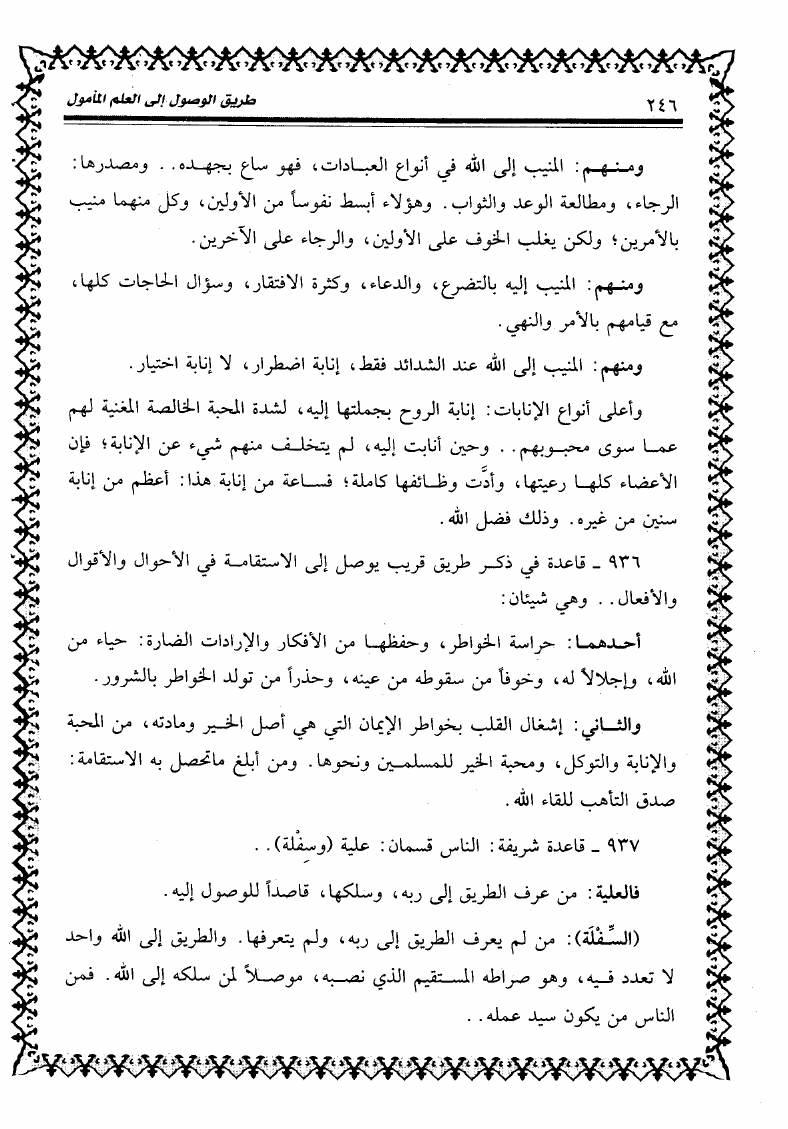 ٢٤٦
طريق الوصول إلى العلم المأمول
ومنـهـم: المنيب إلى الله في أنواع العبـادات، فهو ساع بجهـده. . ومصدرها:
الرجاء، ومطالعة الوعد والثواب. وهؤلاء أبسط نفوساً من الأولين، وكل منهما منيب
بالأمرين؛ ولكن يغلب الخوف على الأولين، والرجاء على الآخرين.
ومنـهم: المنيب إليه بالتضرع، والدعاء، وكثرة الافتقار، وسؤال الحاجات كلها،
مع قيامهم بالأمر والنهي.
ومنهم: المنيب إلى الله عند الشدائد فقط، إنابة اضطرار، لا إنابة اختيار.
وأعلى أنواع الإنابات: إنابة الروح بجملتها إليه، لشدة المحبة الخالصة المغنية لهم
عمـا سوى محبـوبهم. . وحين أنابت إليه، لم يتخلـف منهم شيء عن الإنابة؛ فإن
الأعضاء كلهـا رعيتها، وأدَّت وظـائفها كاملة؛ فسـاعة من إنابة هذا: أعظم من إنابة
سنين من غيره. وذلك فضل الله.
٩٣٦ ـ قاعدة في ذكـر طريق قريب يوصل إلى الاستقامـة في الأحوال والأقوال
والأفعال. . وهي شيئان:
أحـدهمـا: حراسة الخواطر، وحفظهـا من الأفكار والإرادات الضارة: حياء من
الله، وإجلالاً له، وخوفاً من سقوطه من عينه، وحذراً من تولد الخواطر بالشرور.
والثـاني: إشغال القلب بخواطر الإيمان التي هي أصل الخـير ومادته، من المحبة
والإنابة والتوكل، ومحبة الخير للمسلمـين ونحوها. ومن أبلغ ماتحصل به الاستقامة:
صدق التأهب للقاء الله.
٩٣٧ ـ قاعدة شريفة: الناس قسمان: علية (وسِفْلة). .
فالعلية: من عرف الطريق إلى ربه، وسلكها، قاصداً للوصول إليه.
(السِّفْلَة): من لم يعرف الطريق إلى ربه، ولم يتعرفها. والطريق إلى الله واحد
لا تعدد فـيه، وهو صراطه المسـتقيم الذي نصـبه، موصـلاً لمن سلكه إلى الله. فمن
الناس من يكون سيد عمله. .